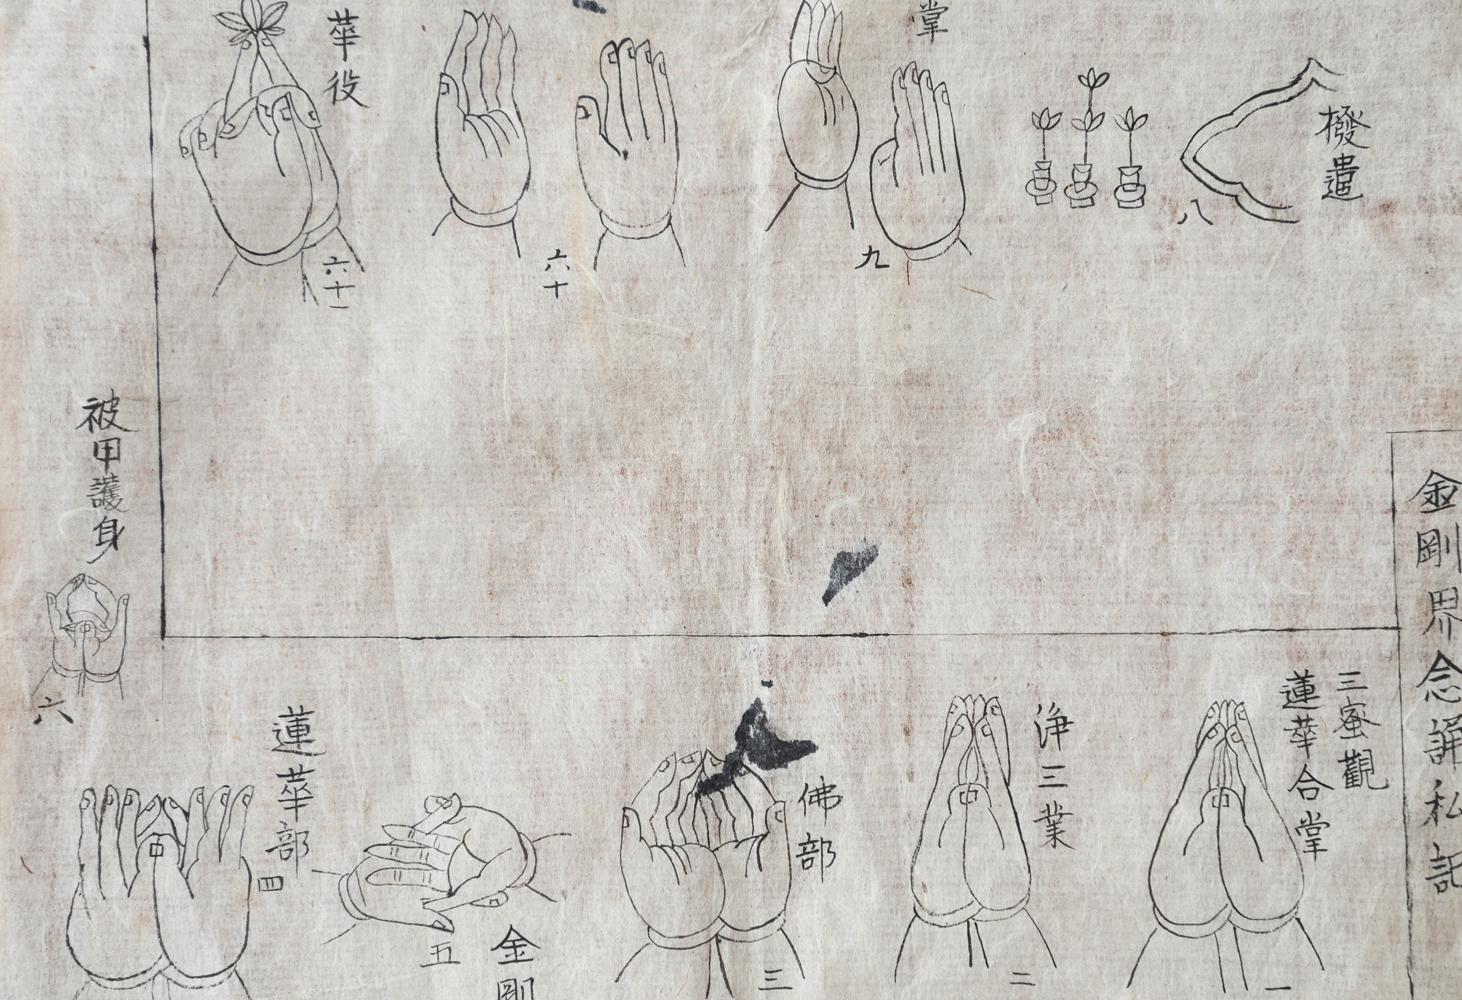 撥遣
八
掌
九
六十
華役
六十一
金剛界念誦私記
三蜜觀
蓮華合掌
一
浄三業
二
佛部
三
蓮華部
四
金剛
五
被甲護身
六